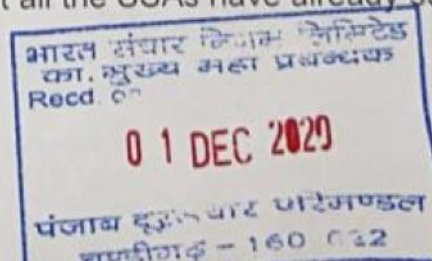 all the SSAs have already
भारत संचार निगम लिमिटेड
का. मुख्य महा प्रबन्धक
Recd.
0 1 DEC 2020
पंजाब दूरसंचार परिमण्डल
चण्डीगढ़ - 160 022